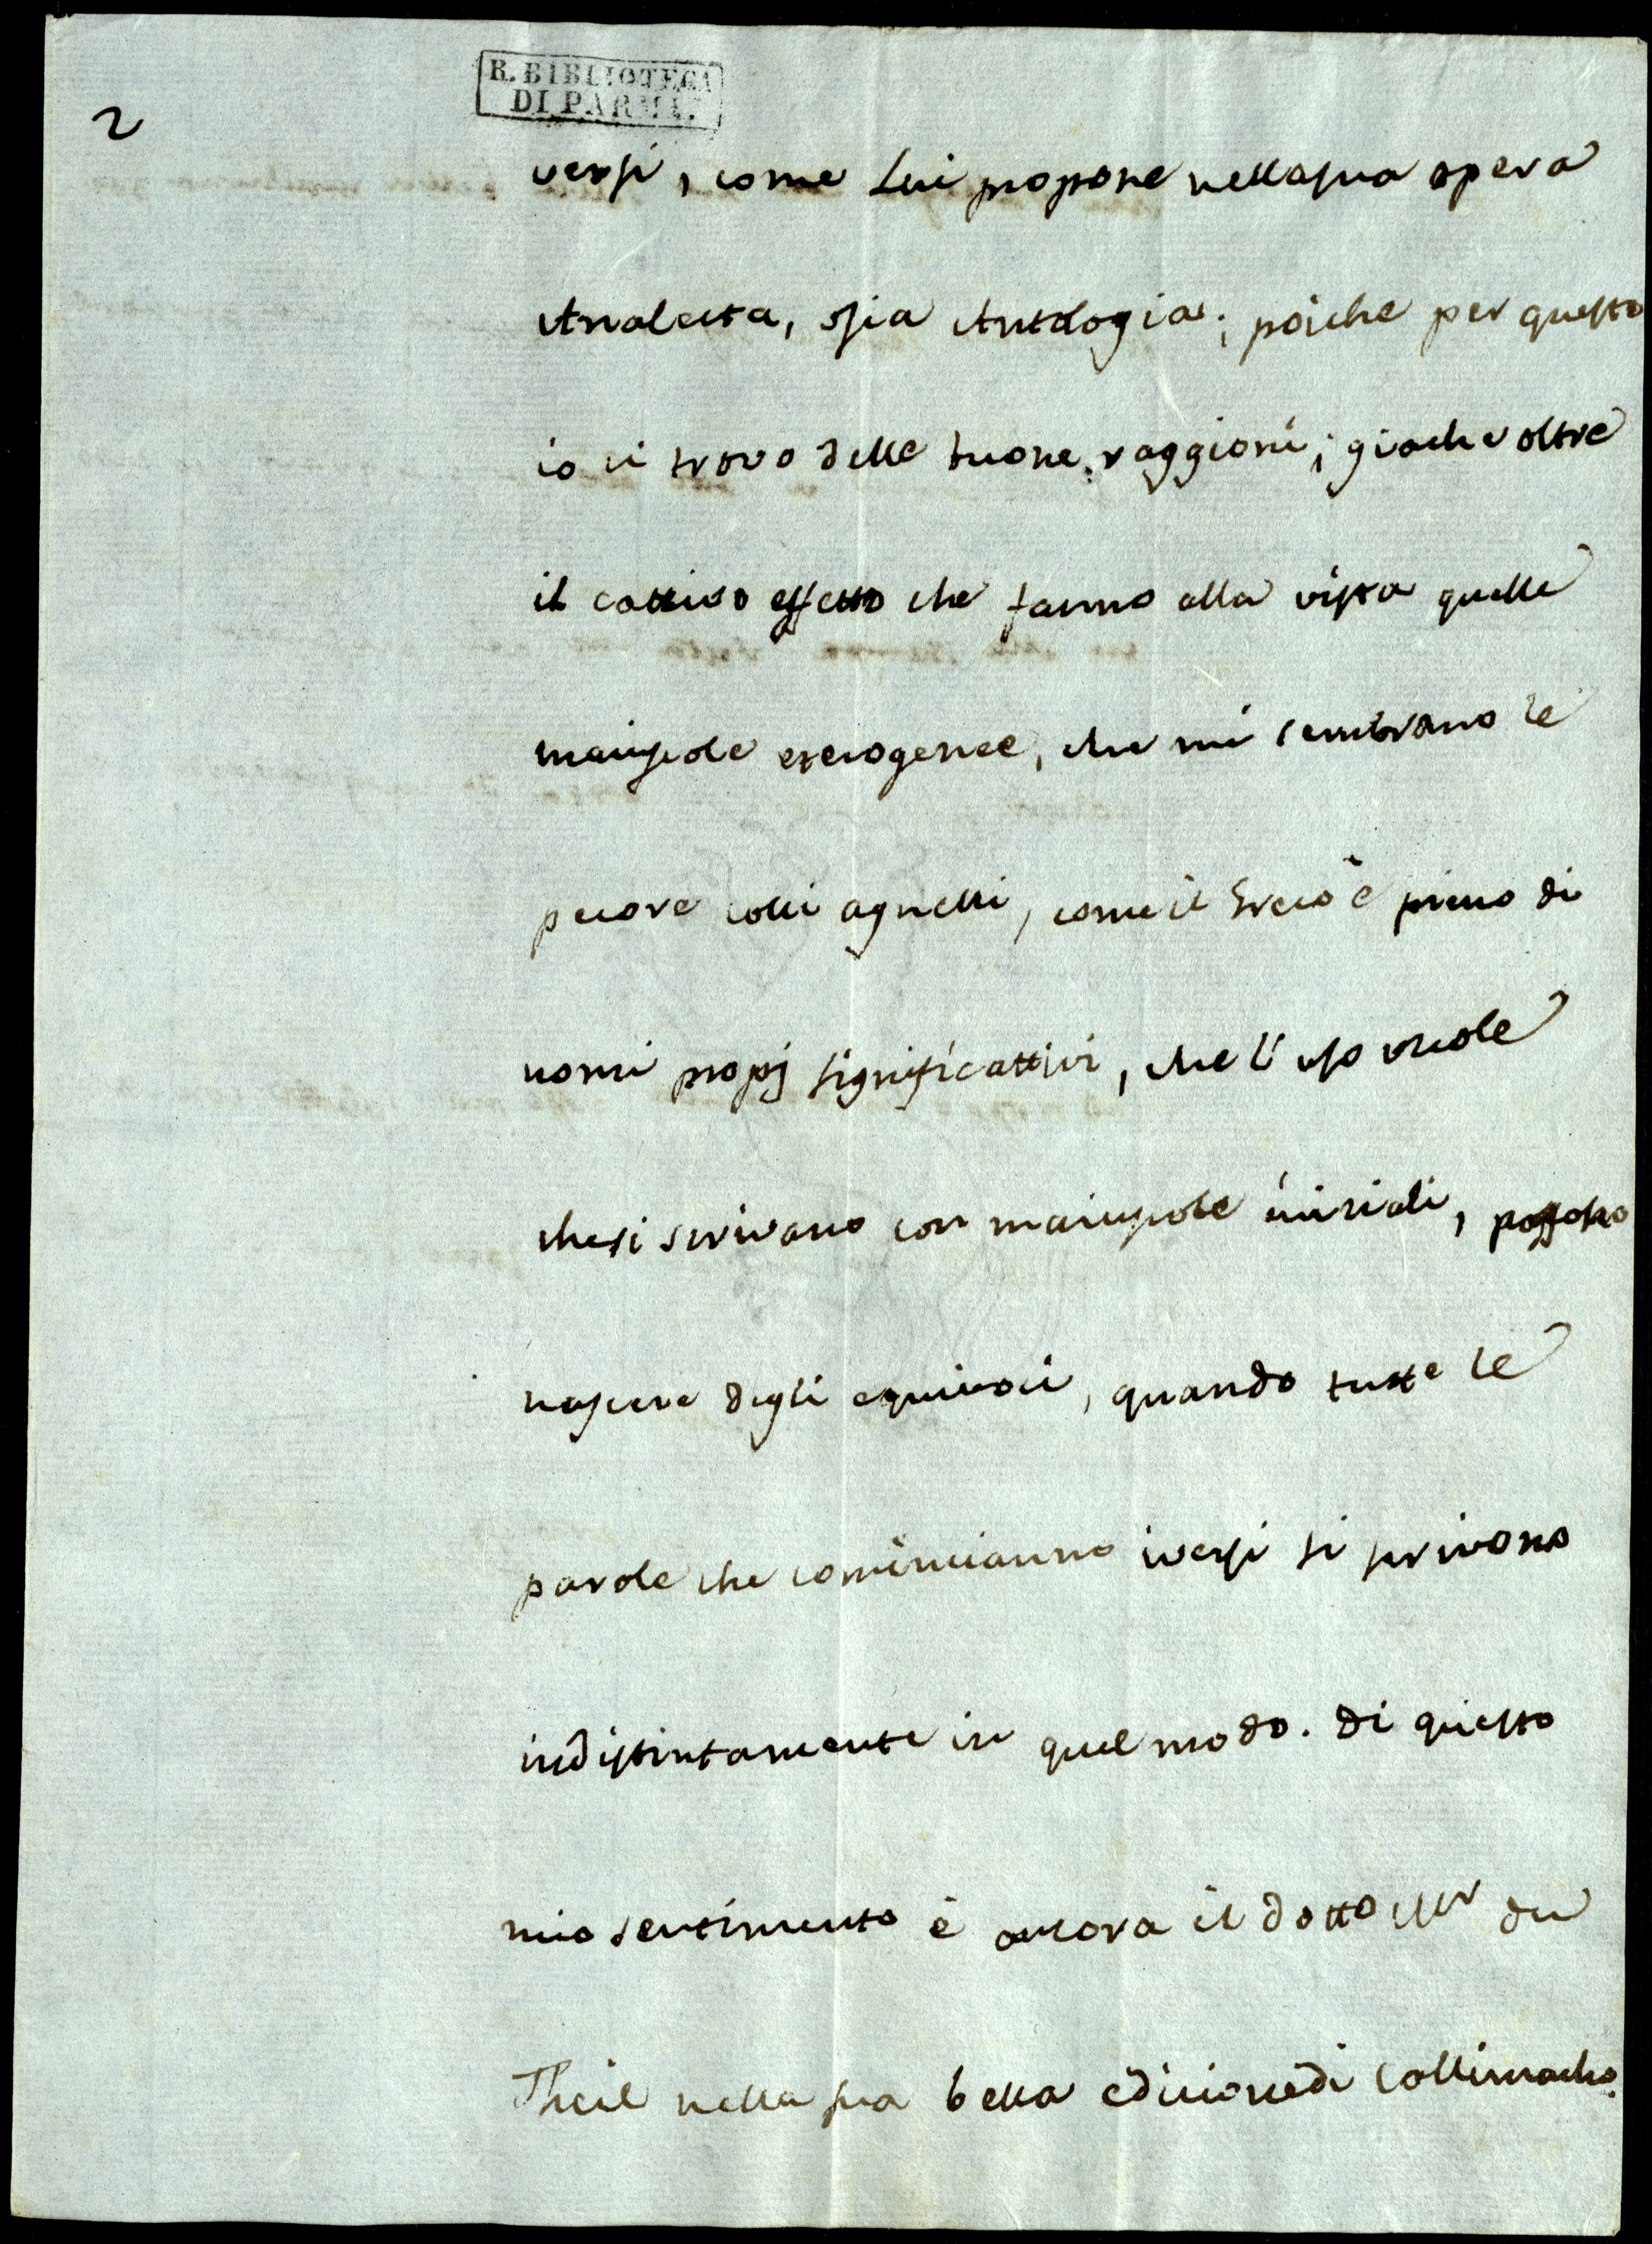 2
R. BIBLIOTECA
DI PARMA.
versi, come Lui propone nella sua opera
Analecta, osia Antologia; poiche per questo
io ci trovo delle buone raggioni; giache oltre
il cattivo effetto che fanno alla vista quelle
maiuscole eterogenee, che mi sembrano le
pecore colli agnelli, come il Greco è pieno di
nomi propj significattivi, che l'uso vuole
che si scrivano con maiuscole iniziali, possono
nascere degli equivoci, quando tutte le
parole che comincianno i versi si scrivono
indistintamente in quel modo. Di questo
mio sentimento è ancora il dotto Mr du
Theil nella sua bella edicione di Callimacho.